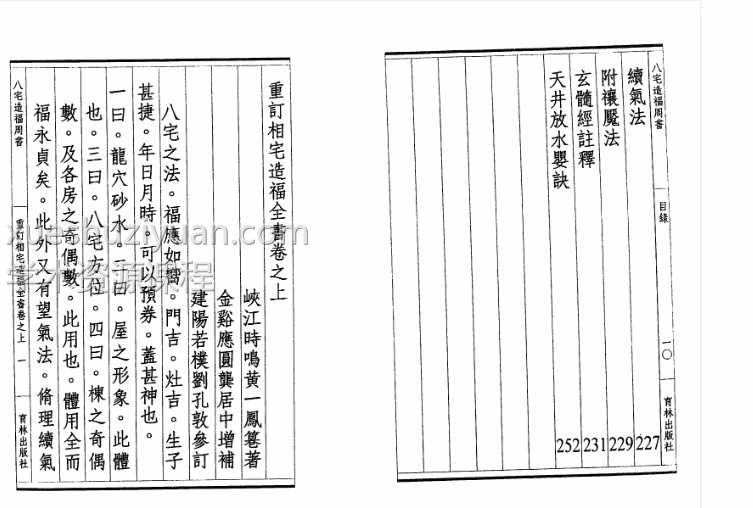 八宅造福周書
目錄
一〇
育林出版社
續氣法
227
附禳魘法
229
玄髓經註釋
231
天井放水嬰訣
252
重訂相宅造福全書卷之上
峽江時鳴黃一鳳篹著
金谿應圓龔居中增補
建陽若樸劉孔敦參訂
八宅之法。福應如嚮。門吉。灶吉。生子
甚捷。年日月時。可以預券。蓋甚神也。
一曰。龍穴砂水。二曰。屋之形象。此體
也。三曰。八宅方位。四曰。棟之奇偶
數。及各房之奇偶數。此用也。體用全而
福永貞矣。此外又有望氣法。脩理續氣
八宅造福周書
重訂相宅造福全書卷之上
一
育林出版社
xueshuziyuan.com
学术资源课程